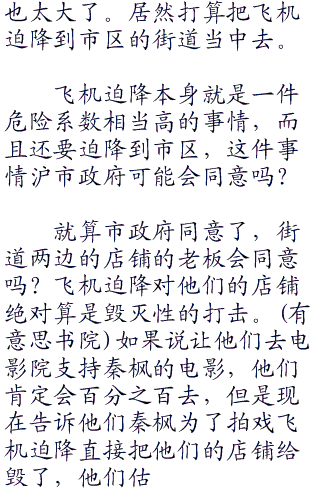 也太大了。居然打算把飞机
迫降到市区的街道当中去。
飞机迫降本身就是一件
危险系数相当高的事情，而
且还要迫降到市区，这件事
情沪市政府可能会同意吗？
就算市政府同意了，街
道两边的店铺的老板会同意
吗？飞机迫降对他们的店铺
绝对算是毁灭性的打击。(有
意思书院)如果说让他们去电
影院支持秦枫的电影，他们
肯定会百分之百去，但是现
在告诉他们秦枫为了拍戏飞
机迫降直接把他们的店铺给
毁了，他们估